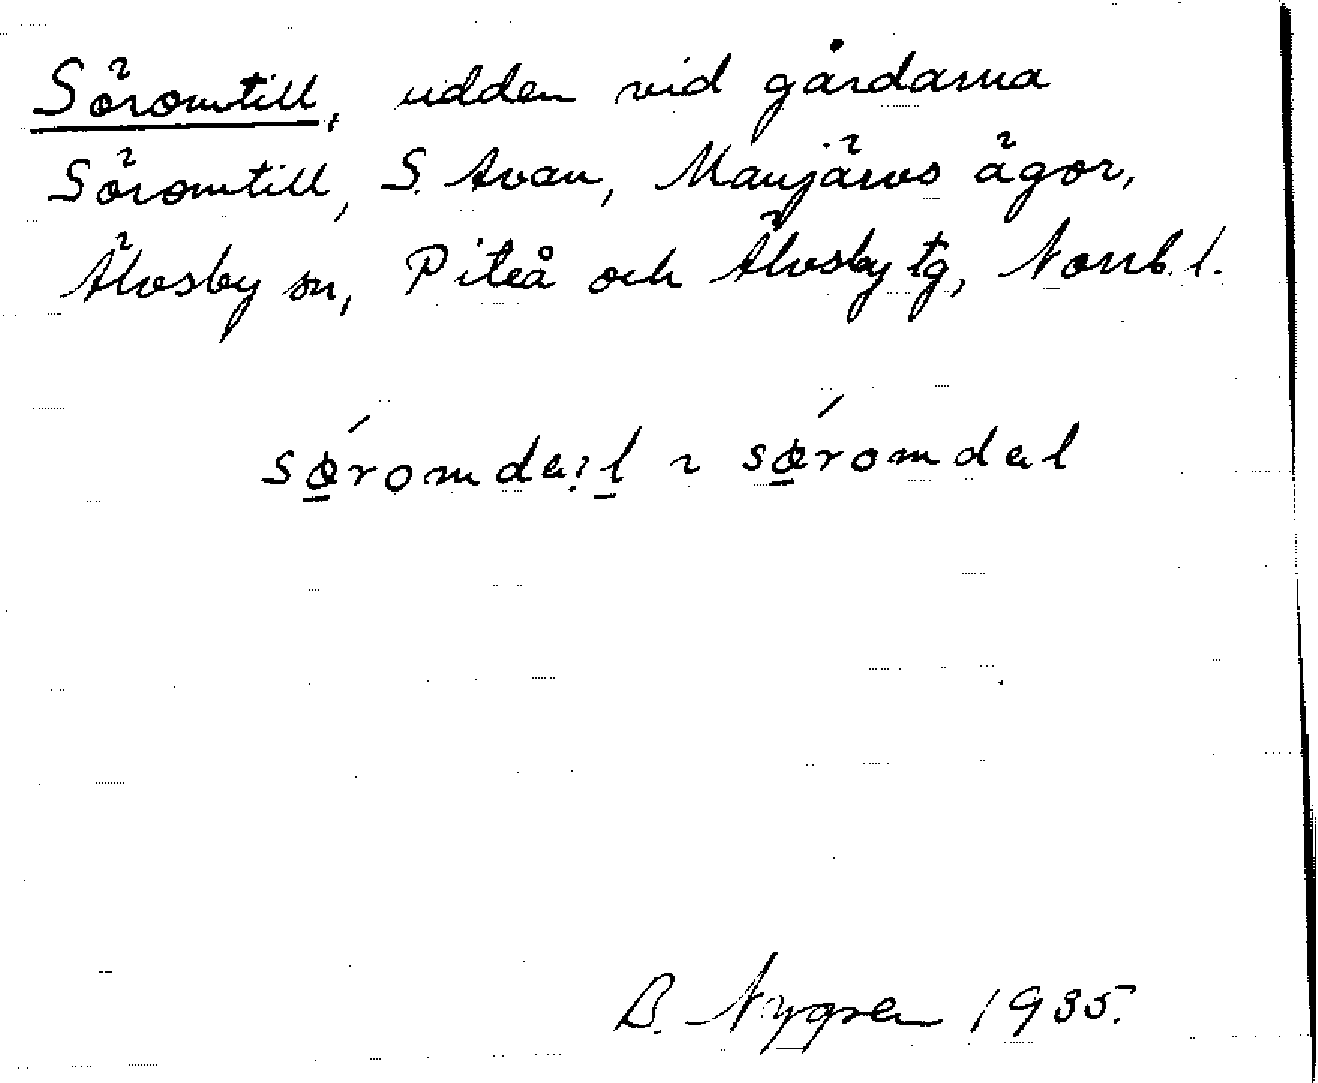 Söromtill, udden vid gårdarna
Söromtill, S. Avan, Manjärvs ägor,
Älvsby sn, Piteå och Älvsby tg, Norrb. l.
sǿ̱romdaːḻ ~ sǿ̱romdal
B. Nygren 1935.